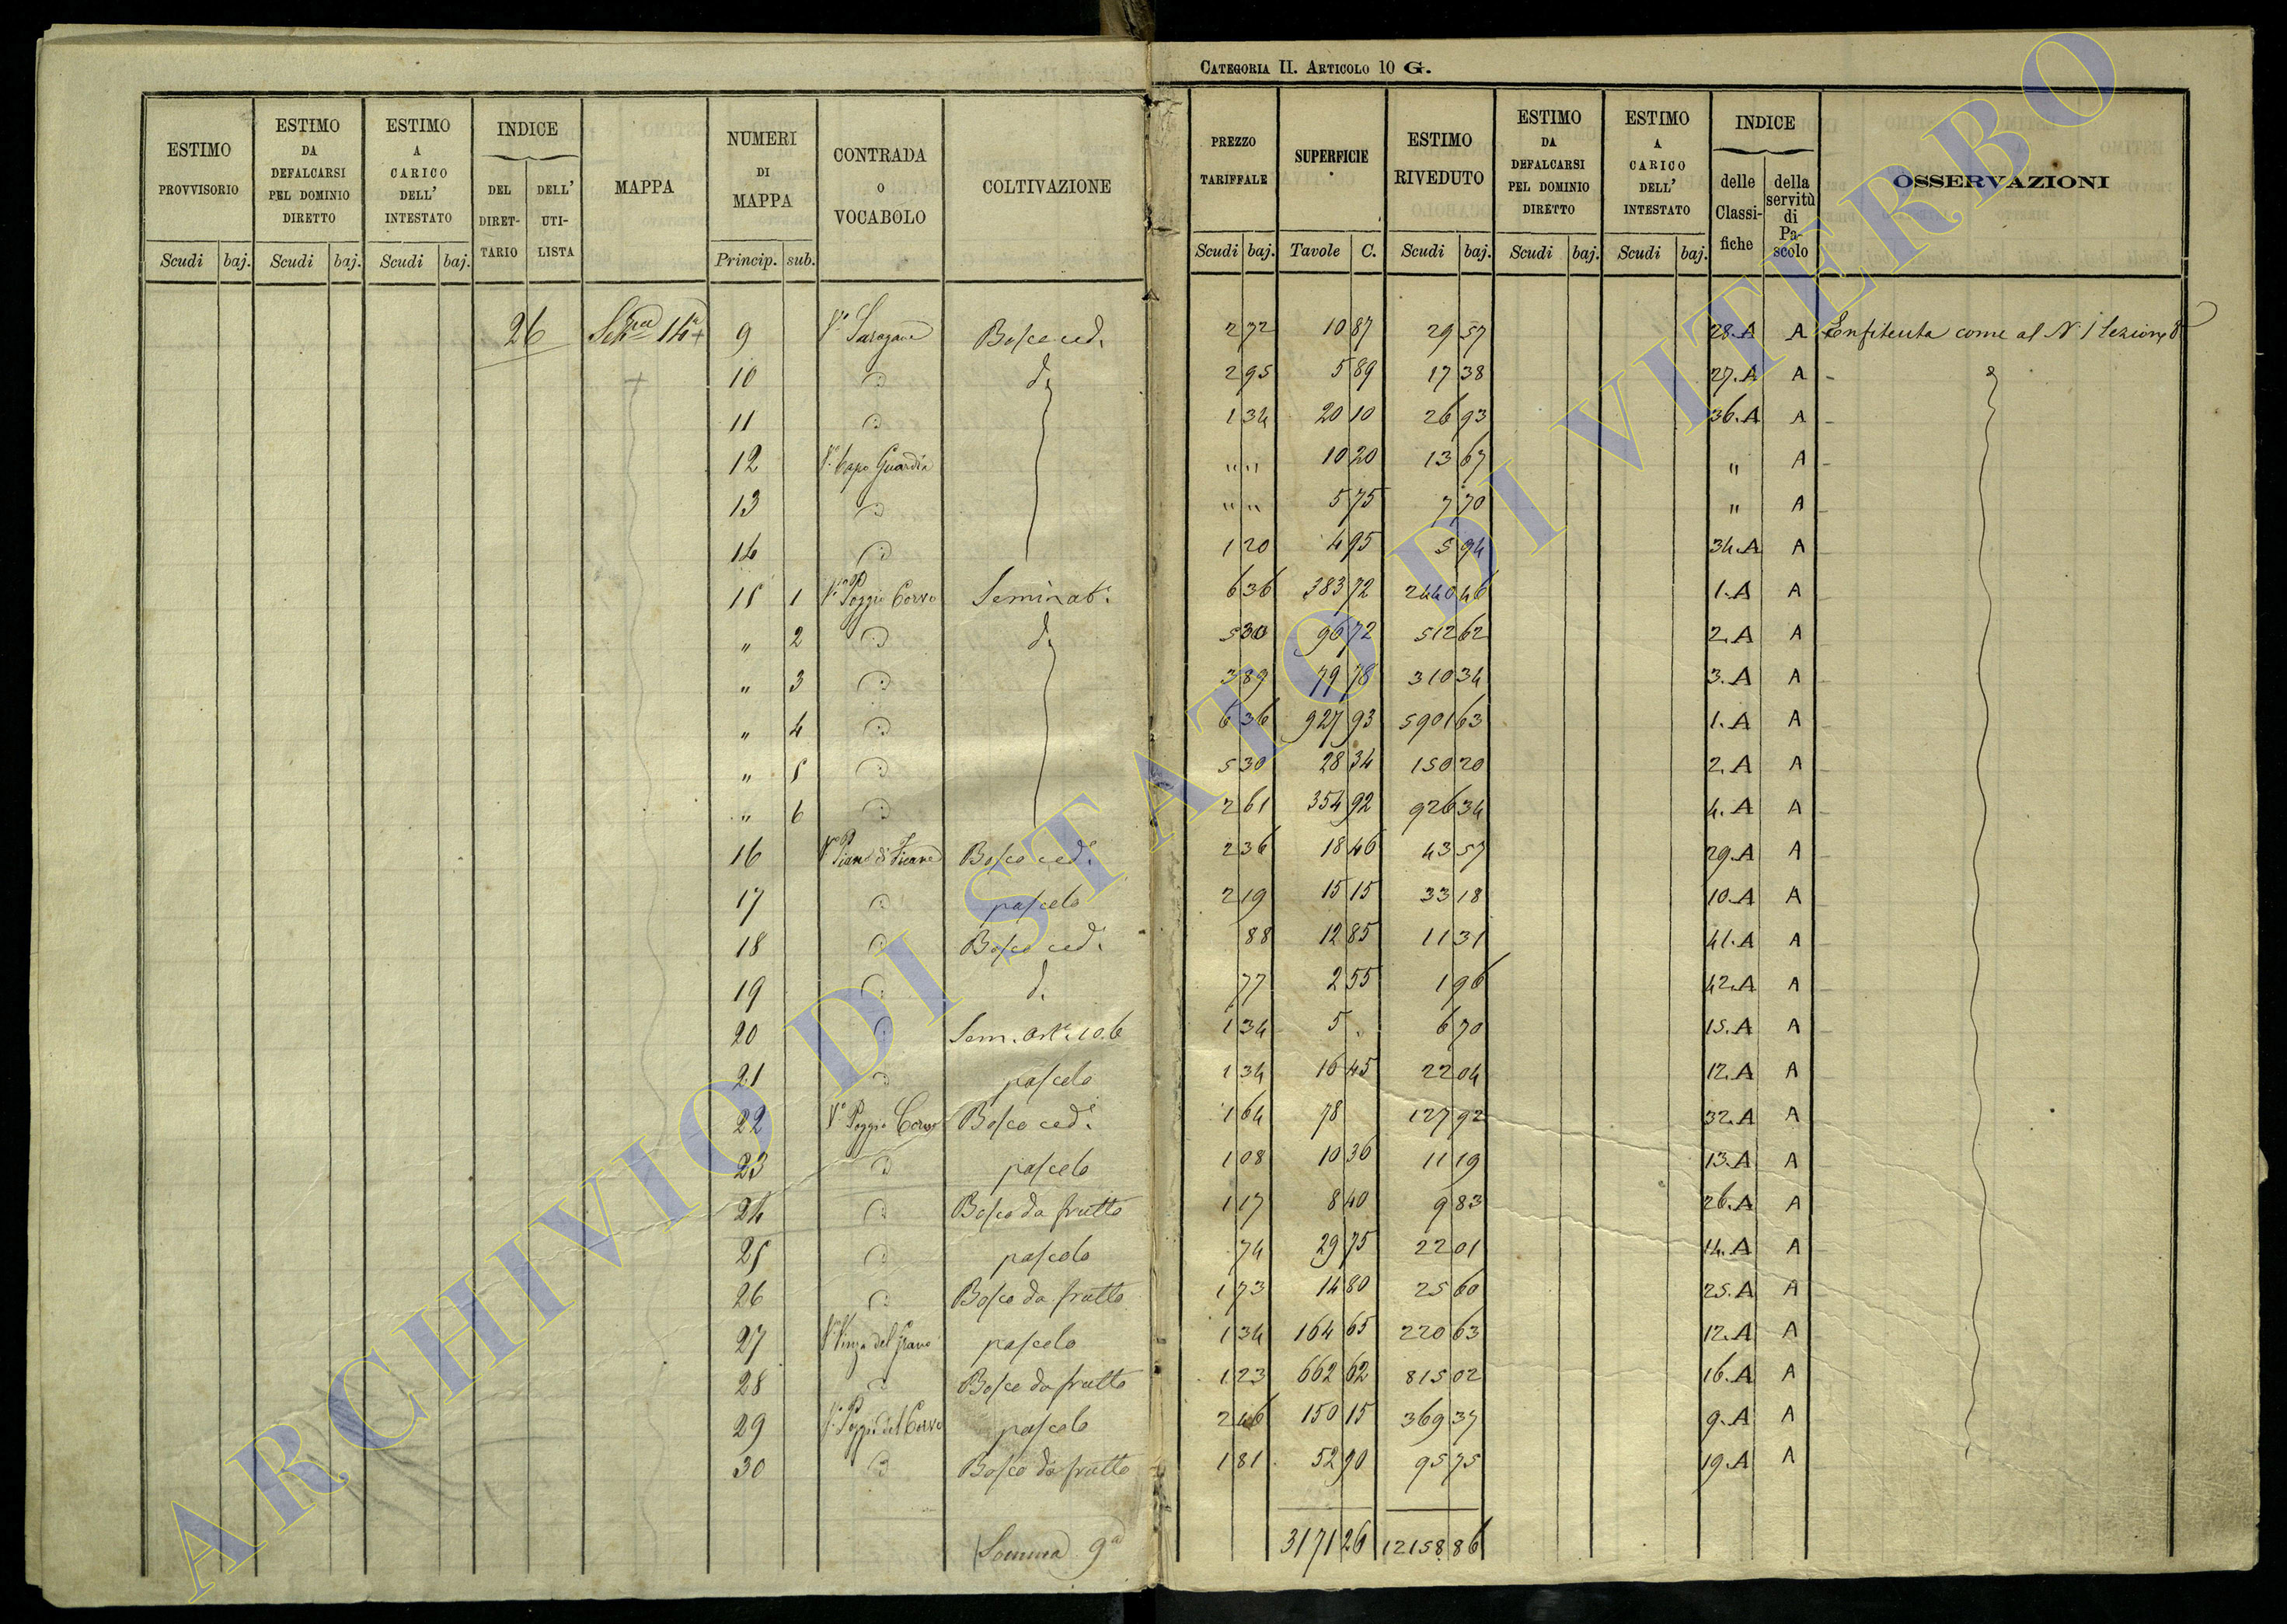 CATEGORIA II. ARTICOLO 10 G.
ESTIMO PROVVISORIO Scudi baj.
ESTIMO DA DEFALCARSI PEL DOMINIO DIRETTO Scudi baj.
ESTIMO A CARICO DELL' INTESTATO Scudi baj.
INDICE DEL DIRET-TARIO DELL' UTI-LISTA
MAPPA
NUMERI DI MAPPA Princip. sub.
CONTRADA O VOCABOLO
COLTIVAZIONE
PREZZO TARIFFALE Scudi baj.
SUPERFICIE Tavole C.
ESTIMO RIVEDUTO Scudi baj.
ESTIMO DA DEFALCARSI PEL DOMINIO DIRETTO Scudi baj.
ESTIMO A CARICO DELL' INTESTATO Scudi baj.
INDICE delle Classi-fiche della servitù di Pa-scolo
OSSERVAZIONI
26 14ª 9 Bosco ced. 2 72 10 87 29 57 28.A A Enfiteuta come al N. 1 Sezione 8ª
10 d. 2 95 5 89 17 38 27.A A
11 1 34 20 10 26 93 36.A A
12 Vº Capo Guardia " " 10 20 13 67 " A
13 " " 5 75 7 70 " A
14 1 20 4 95 5 94 34.A A
15 1 Vº Poggio Corvo Seminatº 6 36 383 72 2440 46 1.A A
" 2 d. 5 30 96 72 512 62 2.A A
" 3 3 89 79 78 310 34 3.A A
" 4 6 36 927 93 5901 63 1.A A
" 5 5 30 28 34 150 20 2.A A
" 6 2 61 354 92 926 34 4.A A
16 Vº Piano di Ficane Bosco cedº 2 36 18 46 43 57 29.A A
17 pascolo 2 19 15 15 33 18 10.A A
18 Bosco cedº 88 12 85 11 31 41.A A
19 d. 77 2 55 1 96 42.A A
20 1 34 5 . 6 70 15.A A
21 pascolo 1 34 16 45 22 04 12.A A
22 Vº Poggio Corvo Bosco cedº 1 64 78 127 92 32.A A
23 pascolo 1 08 10 36 11 19 13.A A
24 Bosco da frutto 1 17 8 40 9 83 26.A A
25 pascolo 74 29 75 22 01 14.A A
26 Bosco da frutto 1 73 14 80 25 60 25.A A
27 pascolo 1 34 164 65 220 63 12.A A
28 Bosco da frutto 1 23 662 62 815 02 16.A A
29 Vº Poggio del Corvo pascolo 2 46 150 15 369 37 9.A A
30 Bosco da frutto 1 81 52 90 95 75 19.A A
Somma 9ª 3171 26 12158 86
ARCHIVIO DI STATO DI VITERBO